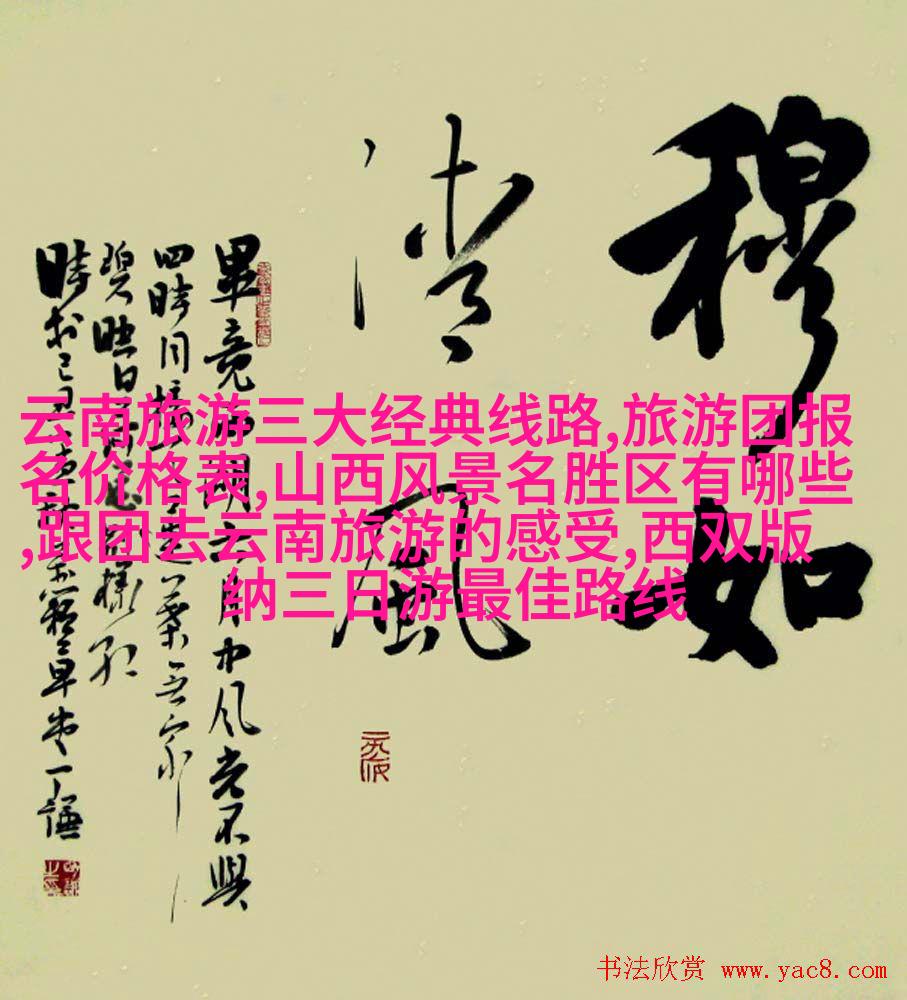 穆如
清風
畢竟西湖六月中风光不與
四時同接天蓮葉无窮
碧映日荷花别樣红
云南旅游三大经典线路,旅游团报
名价格表,山西风景名胜区有哪些
,跟团去云南旅游的感受,西双版
纳三日游最佳路线
书法欣赏 www.yac8.com